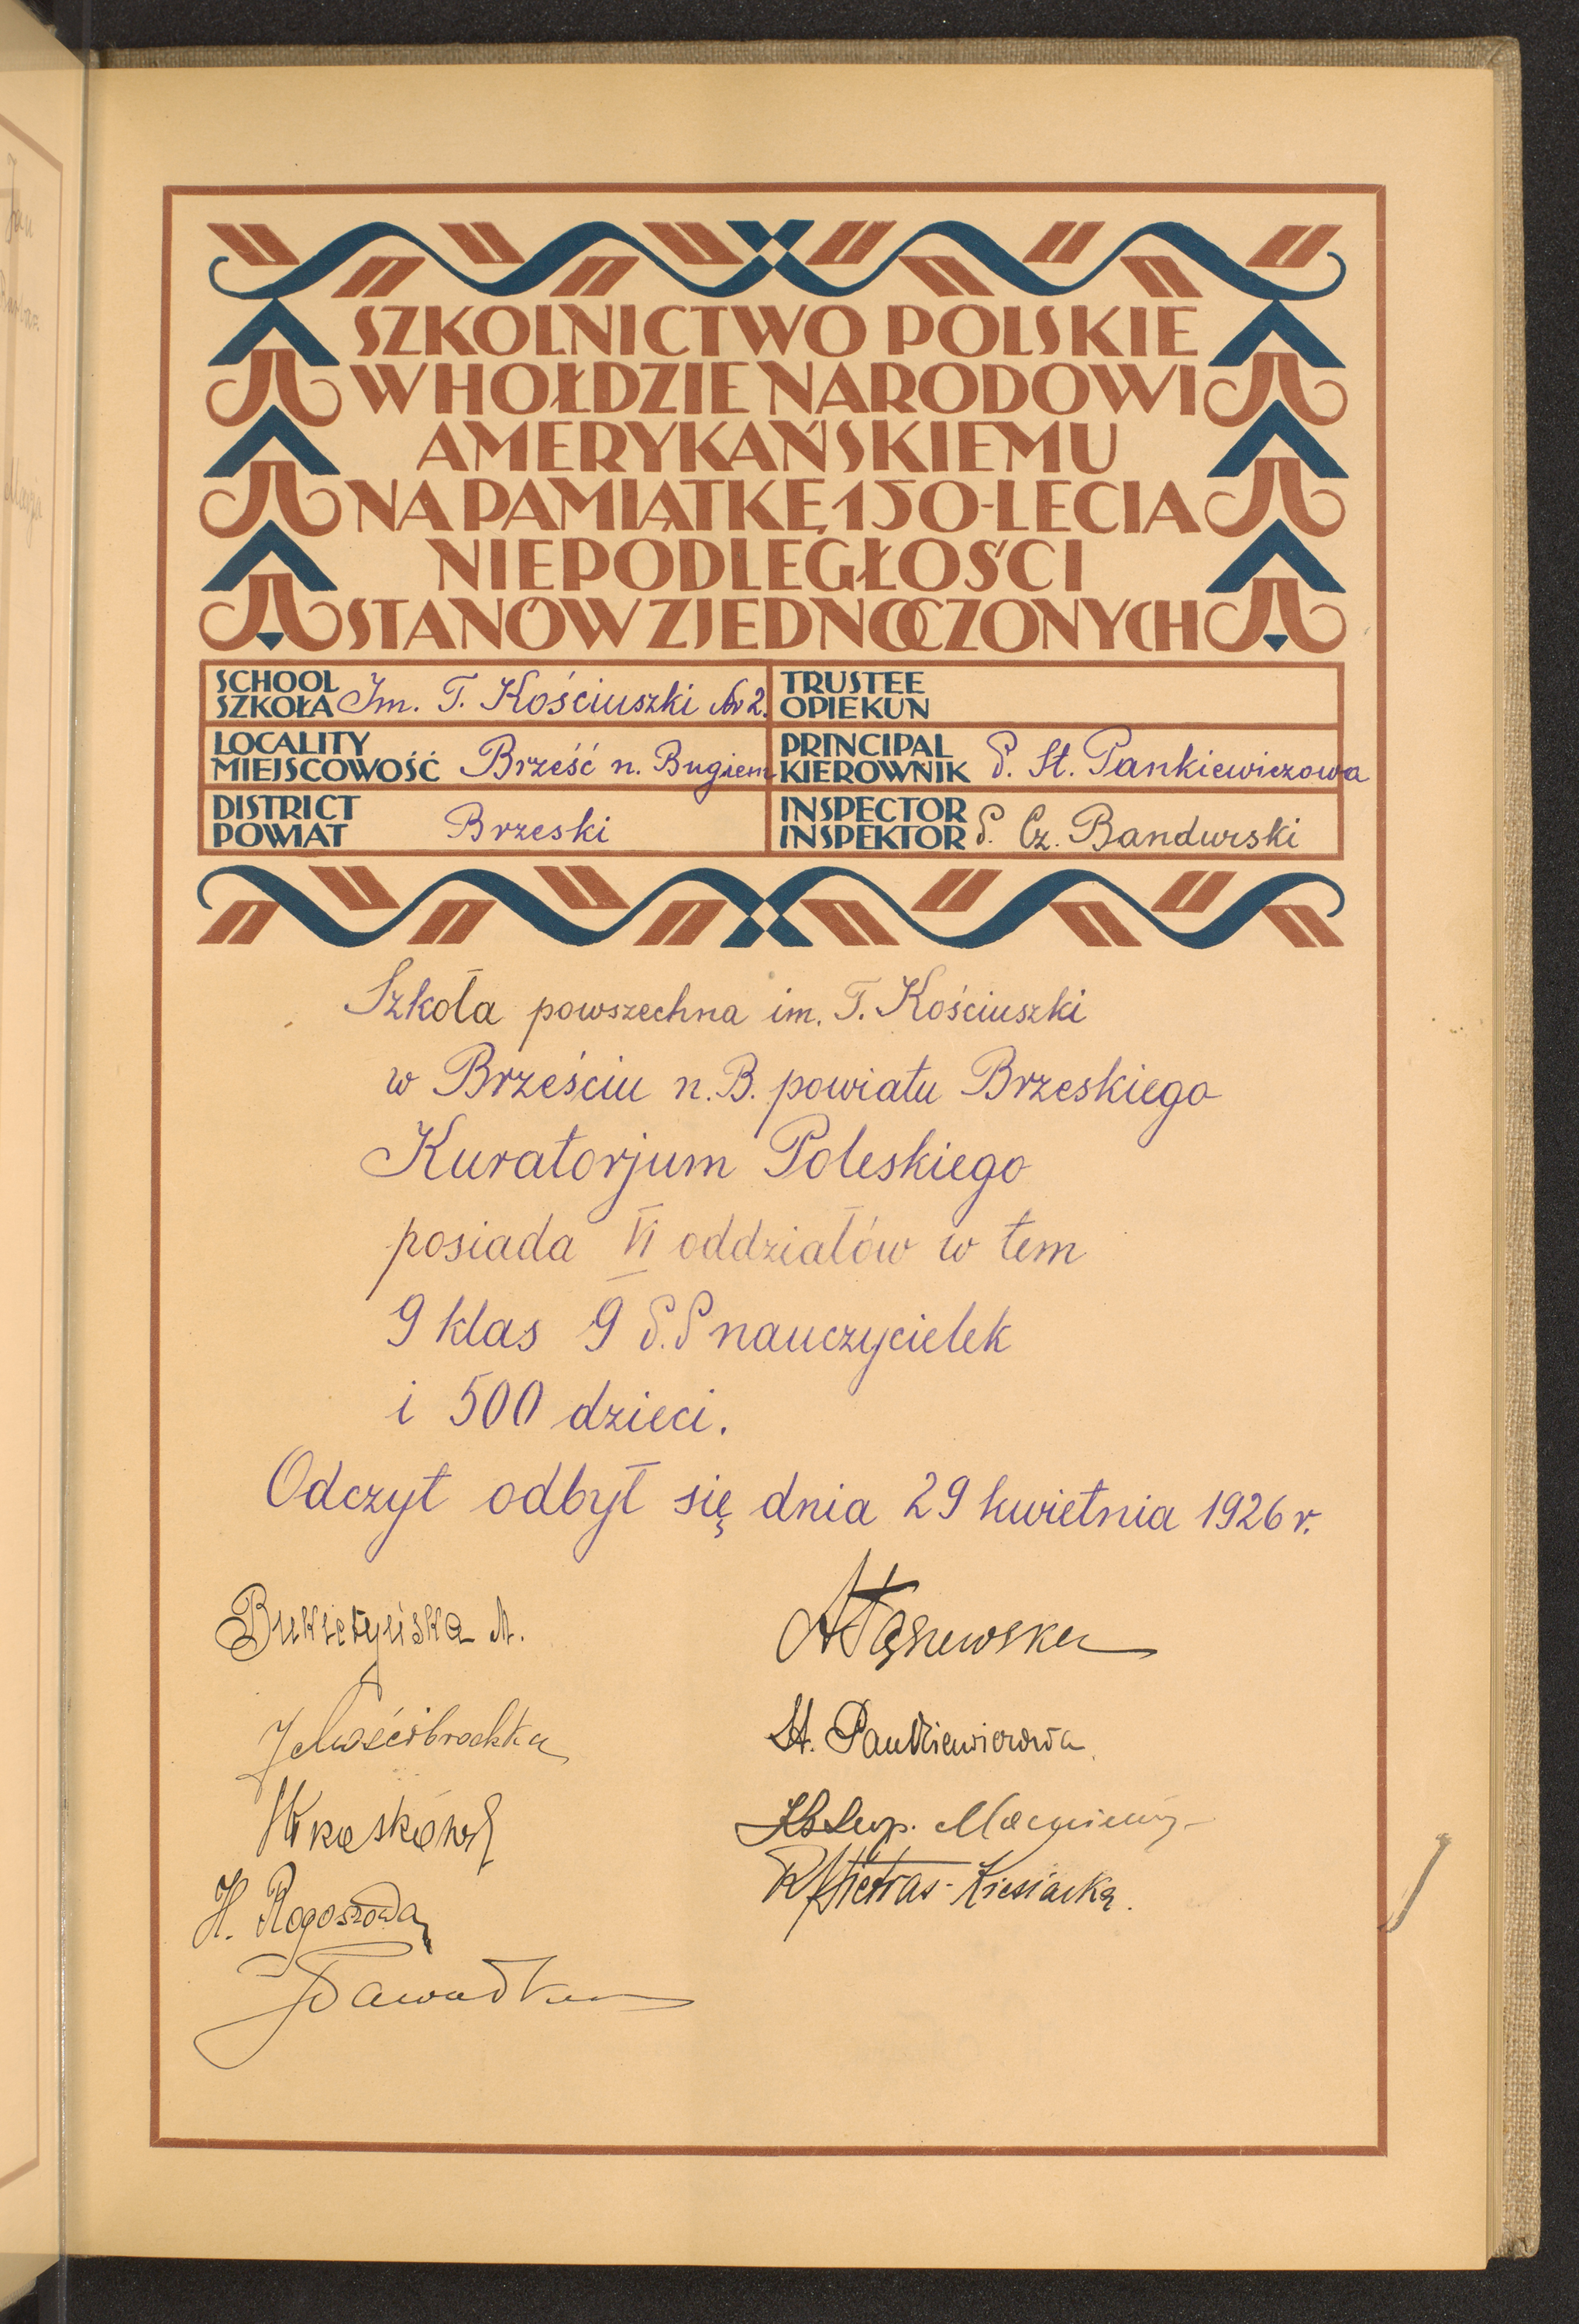 SZKOLNICTWO POLSKIE
W HOŁDZIE NARODOWI
AMERYKAŃSKIEMU
NA PAMIĄTKĘ 150-LECIA
NIEPODLEGŁOŚCI
STANÓW ZJEDNOCZONYCH
SCHOOL
SZKOŁA Im. T. Kościuszki Nr 2.
TRUSTEE
OPIEKUN
LOCALITY
MIEJSCOWOŚĆ Brześć n. Bugiem
PRINCIPAL
KIEROWNIK P. St. Pankiewiczowa
DISTRICT
POWIAT Brzeski
INSPECTOR
INSPEKTOR P. Cz. Bandurski
Szkoła powszechna im. T. Kościuszki
w Brześciu n. B. powiatu Brzeskiego
Kuratorjum Poleskiego
posiada VI oddziałów w tem
9 klas 9 P.P nauczycielek
i 500 dzieci.
Odczyt odbył się dnia 29 kwietnia 1926 r.
Bukietyńska A.
J Mościbrodzka
H. Rogoszowa
St. Pankiewiczowa